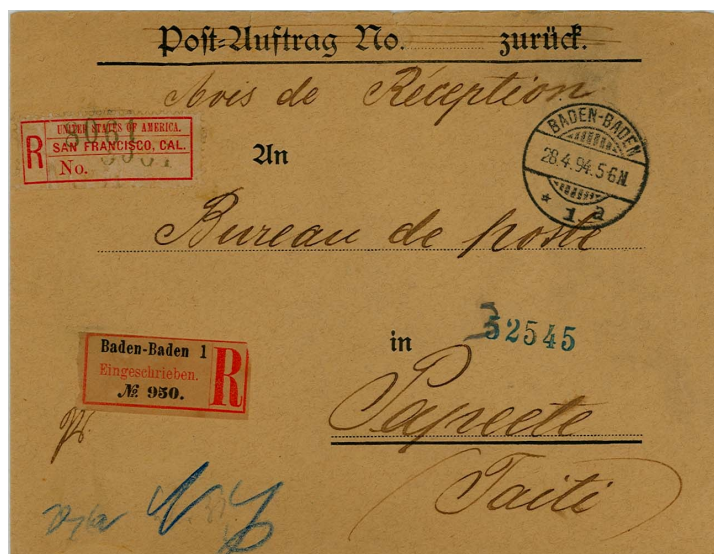 Post-Auftrag No. zurück.
Avis de Réception
UNITED STATES OF AMERICA.
R SAN FRANCISCO, CAL.
No.
8061
An
BADEN-BADEN
28.4.94.5-6N.
* 1.a
Bureau de poste
in
32545
Baden-Baden 1
Eingeschrieben.
№ 950.
R
Papeete
(Taiti)